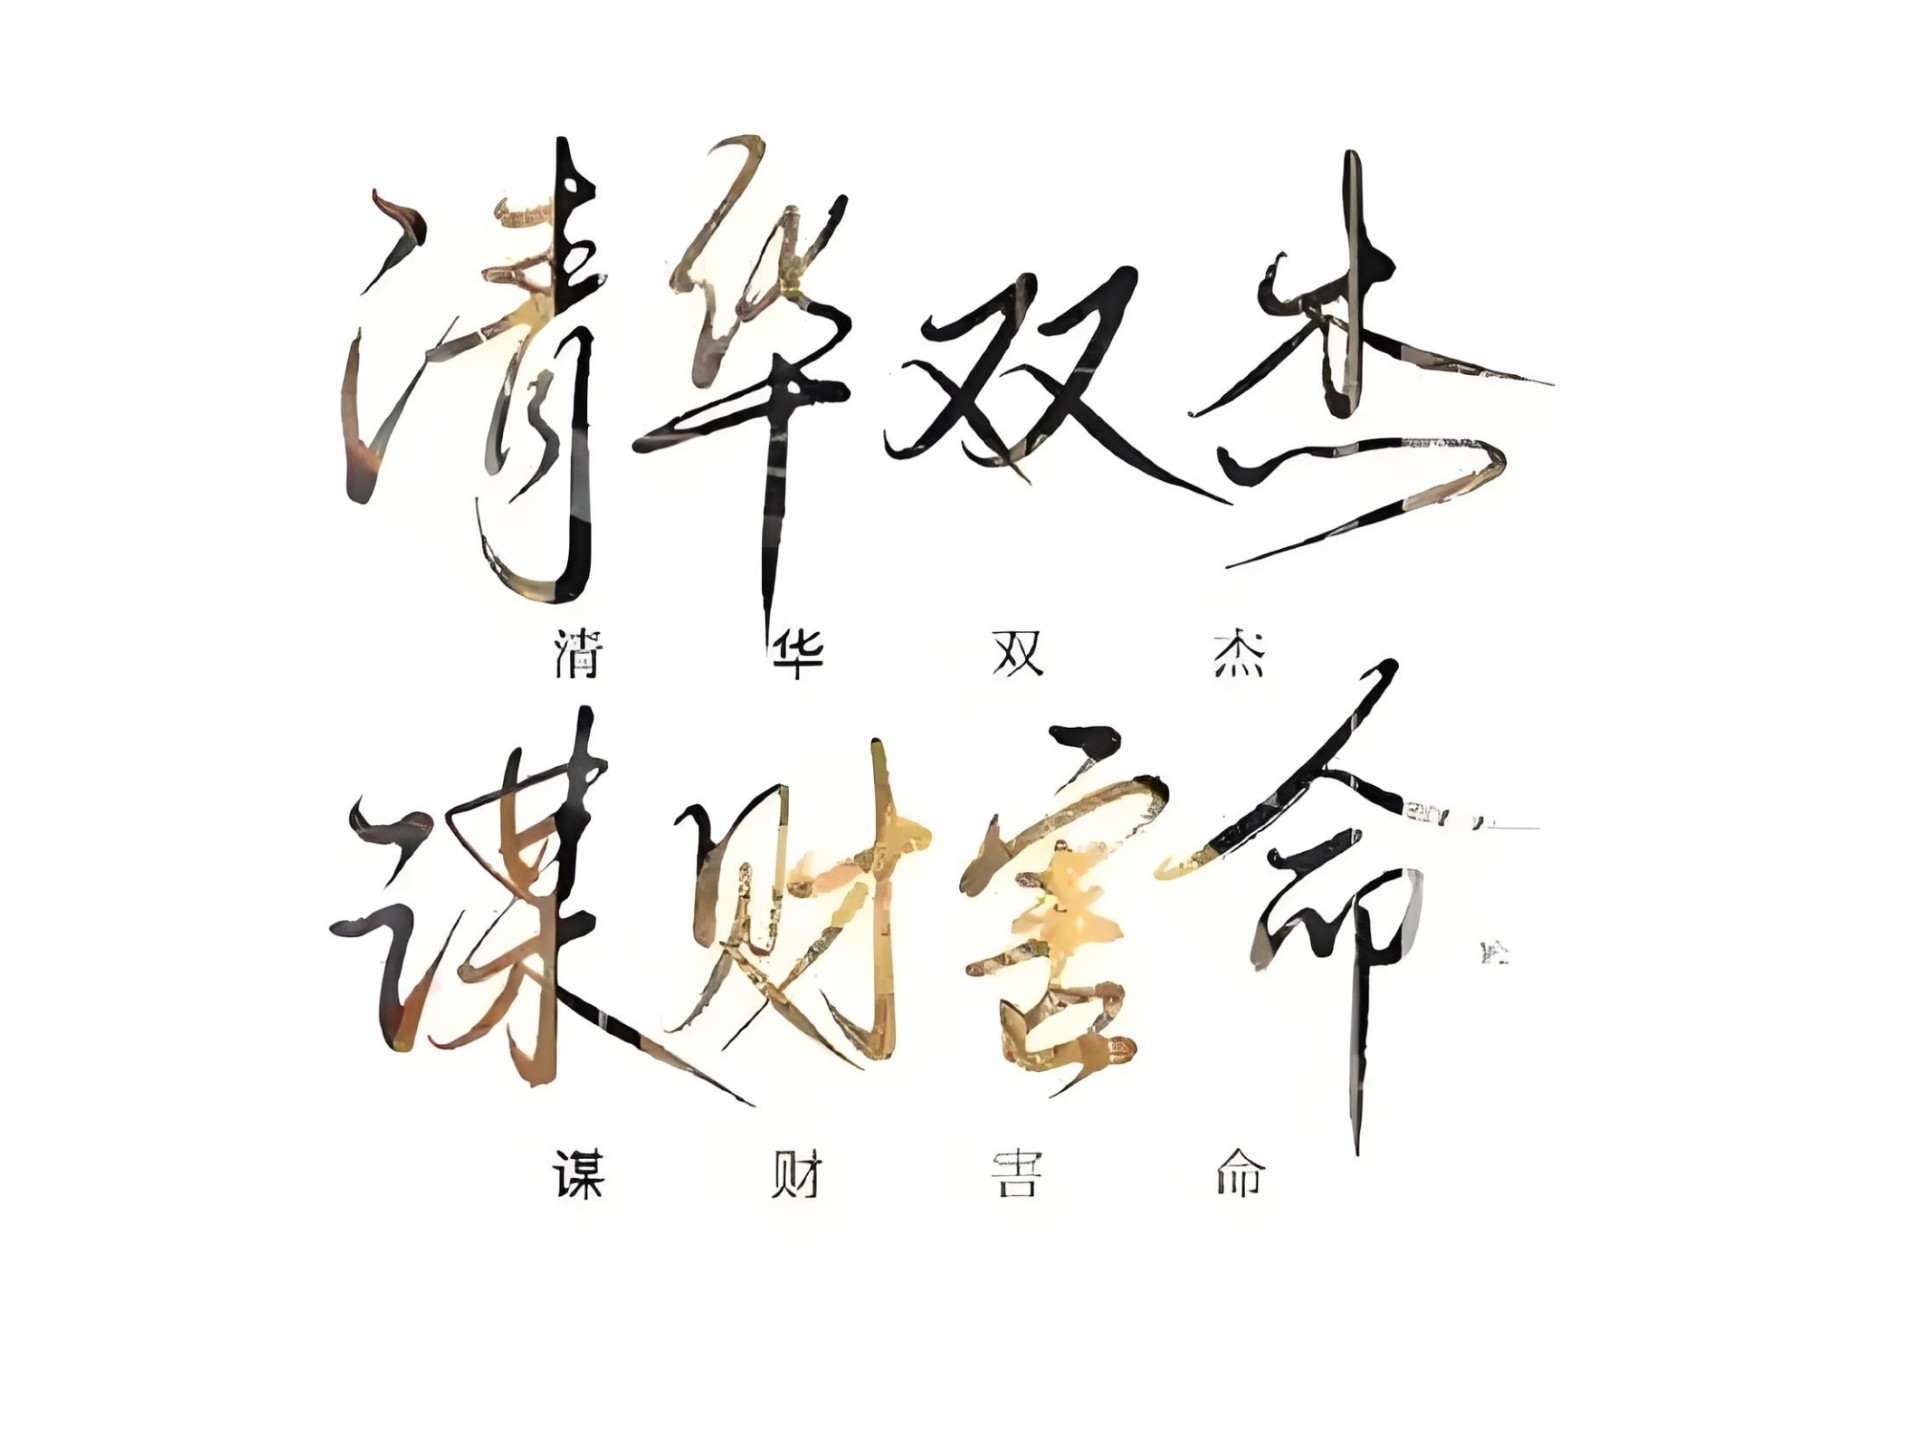 清华双杰
清 华 双 杰
谋财害命
谋 财 害 命